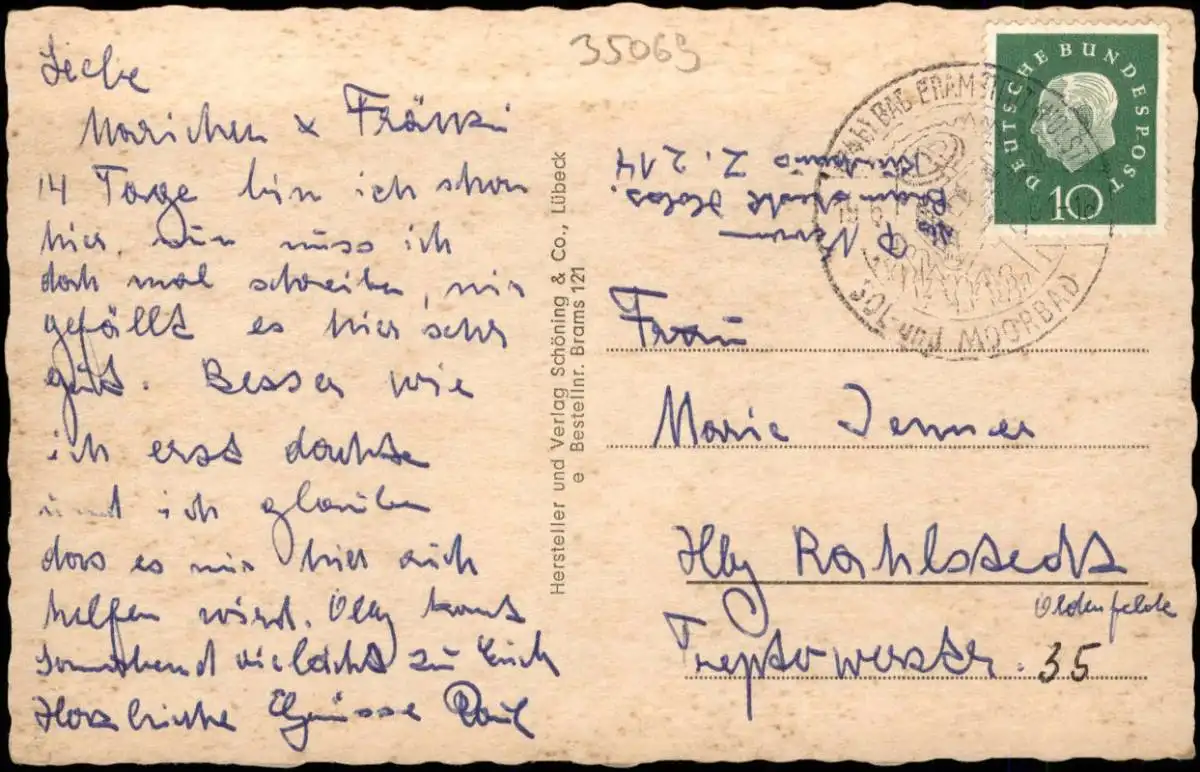 35069
Liebe
Marichen & Fränzi
14 Tage bin ich schon
hier nun muss ich
doch mal schreiben, mir
gefällt es hier sehr
gut. Besser wie
ich erst dachte
und ich glaube
dass es mir hier auch
helfen wird. Olly kommt
Sonnabend vieleicht zu Euch
Herzliche Grüsse Paul
Hersteller und Verlag Schöning & Co., Lübeck
e Bestellnr. Brams 121
DEUTSCHE BUNDESPOST
10
BAD BRAMSTEDT HOLST
SOL- und MOORBAD
Bad
Bramstedt Holst.
Kurhaus Z. 214
Frau
Marie Jenner
Hbg Rahlstedt
Oldenfelde
Treptowerstr. 35